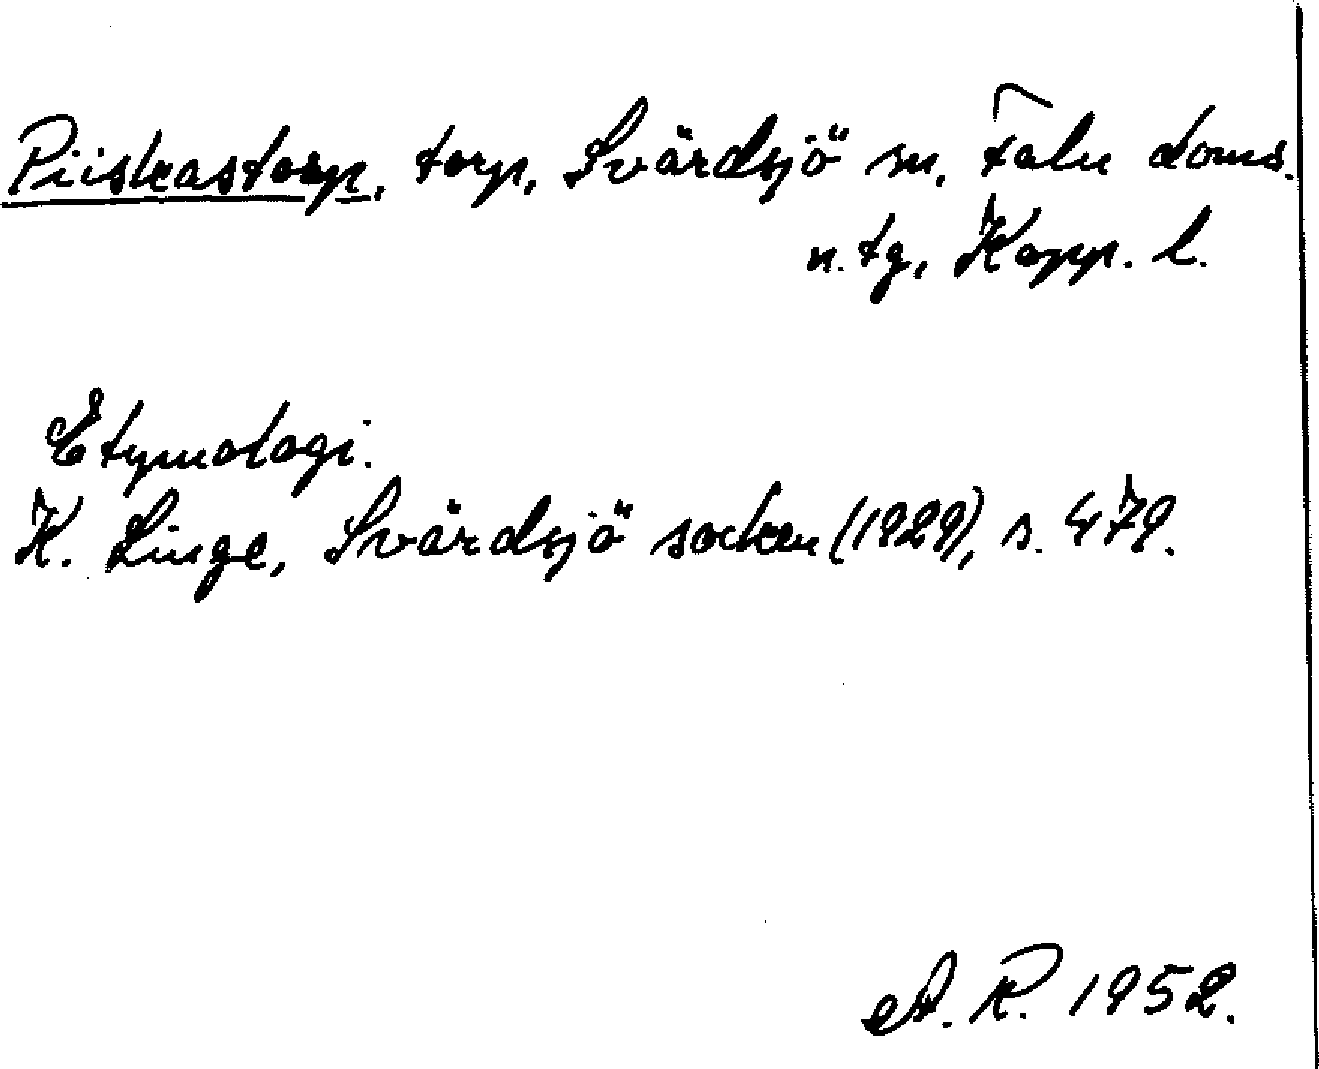 Piiskastorp, torp, Svärdsjö sn, Falu doms.
n. tg, Kopp. l.
Etymologi.
K. Linge, Svärdsjö socken (1929), s. 479.
A. R. 1952.